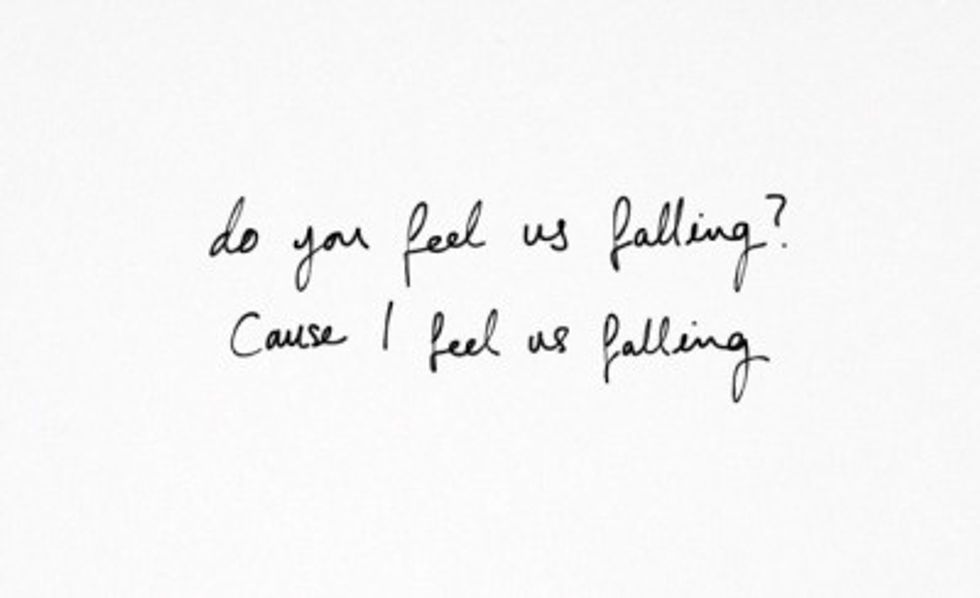 do you feel us falling?
Cause I feel us falling